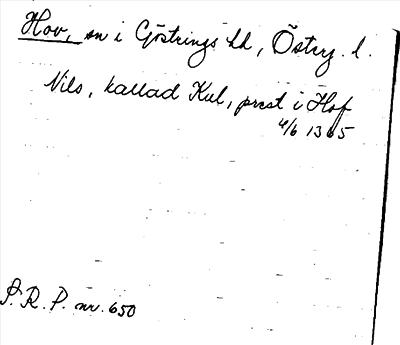 Hov, sn i Göstrings hd, Östrg. l.
Nils, kallad Kul, prest i Hof
4/6 1365
S. R. P. nr. 650